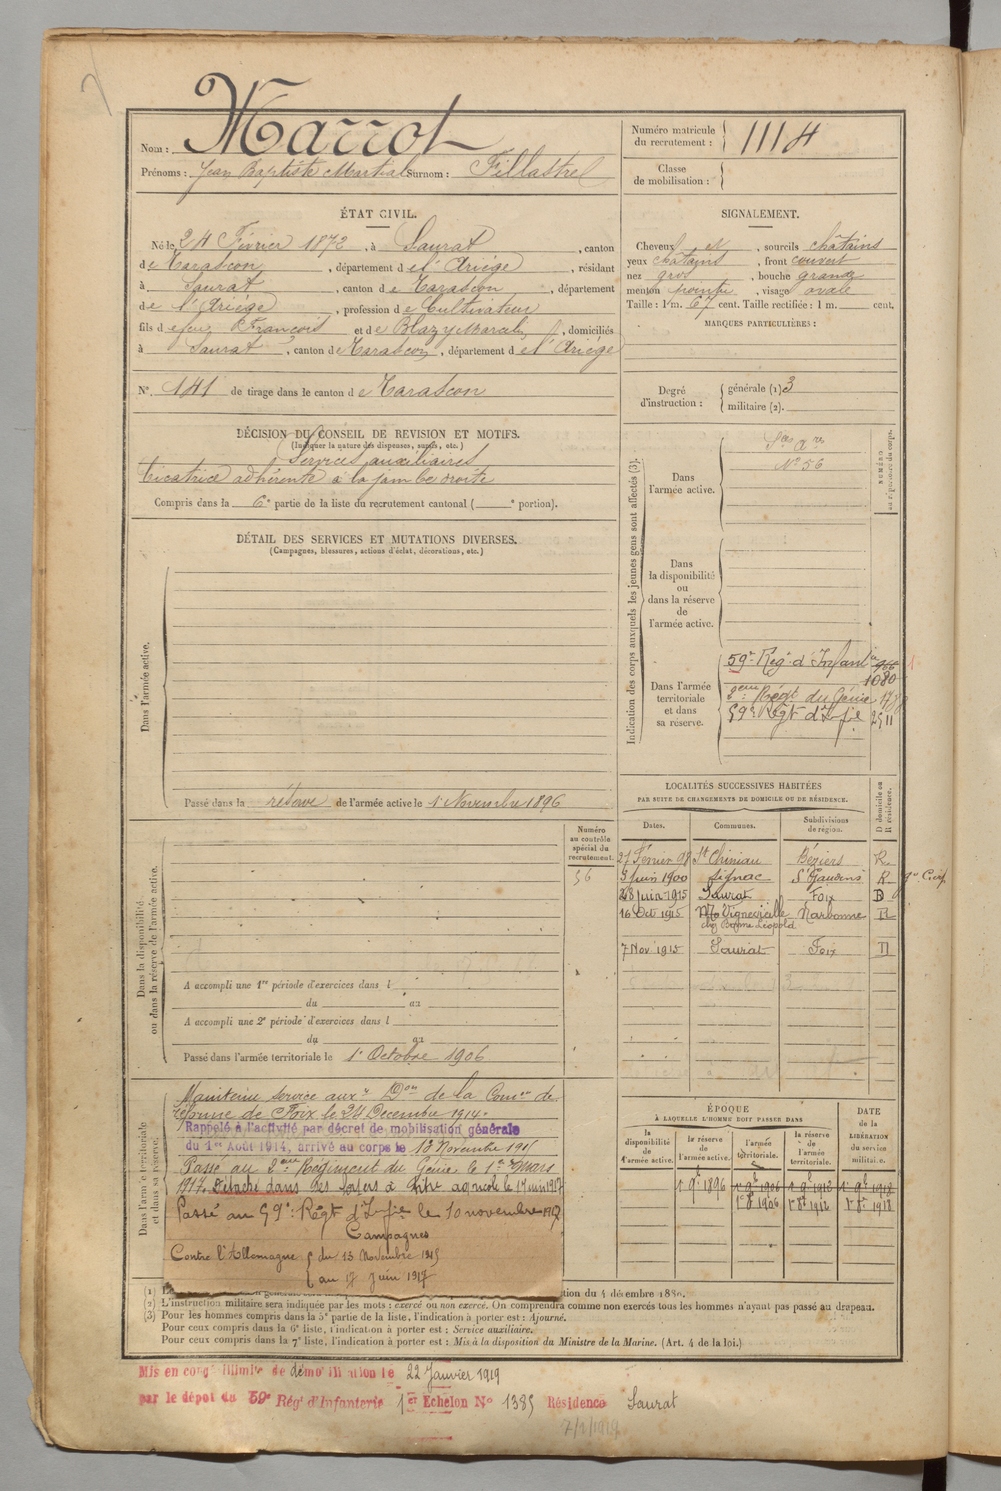 Nom : Marrot
Prénoms : Jean Baptiste Martial Surnom : Fillastrel
Numéro matricule du recrutement : 1114
Classe de mobilisation :
ÉTAT CIVIL.
Né le 24 Février 1872, à Saurat, canton
de Tarascon, département de l'Ariége, résidant
à Saurat, canton de Tarascon, département
de l'Ariége, profession de Cultivateur
fils de feu François et de Blazy Marcel, domiciliés
à Saurat, canton de Tarascon, département de l'Ariége
N° 141 de tirage dans le canton de Tarascon
SIGNALEMENT.
Cheveux et, sourcils châtains
yeux châtains, front couvert
nez gros, bouche grande
menton pointu, visage ovale
Taille : 1 m. 67 cent. Taille rectifiée : 1 m. cent.
MARQUES PARTICULIÈRES :
Degré d'instruction : générale (1) 3
militaire (2).
DÉCISION DU CONSEIL DE REVISION ET MOTIFS.
(Indiquer la nature des dispenses, sursis, etc.)
Services auxiliaires
Cicatrice adhérente à la jambe droite
Compris dans la 6e partie de la liste du recrutement cantonal ( e portion).
DÉTAIL DES SERVICES ET MUTATIONS DIVERSES.
(Campagnes, blessures, actions d'éclat, décorations, etc.)
Dans l'armée active.
Passé dans la réserve de l'armée active le 1 Novembre 1896
Indication des corps auxquels les jeunes gens sont affectés (3).
NUMÉRO au répertoire du corps.
Dans l'armée active.
Ses Ares
N° 56
Dans la disponibilité ou dans la réserve de l'armée active.
Dans l'armée territoriale et dans sa réserve.
59e Reg. d'Infantie
1080
2eme Régt du Génie
59e Régt d'Infie 2511
LOCALITÉS SUCCESSIVES HABITÉES
PAR SUITE DE CHANGEMENTS DE DOMICILE OU DE RÉSIDENCE.
Dates. Communes. Subdivisions de région. D domicile ou R résidence.
21 Février 98 St Chinian Béziers R.
3 Juin 1900 Signac St Gaudens R
28 Juin 1915 Saurat Foix D
16 Oct 1915 Vignevieille Narbonne R
chez Bonne Léopold
7 Nov 1915 Saurat Foix D
Dans la disponibilité ou dans la réserve de l'armée active.
Numéro au contrôle spécial du recrutement.
56
A accompli une 1re période d'exercices dans l
du au
A accompli une 2e période d'exercices dans l
du au
Passé dans l'armée territoriale le 1 Octobre 1906
Dans l'armée territoriale et dans sa réserve.
Maintenu service auxre Don de la Comon de
réforme de Foix le 24 Decembre 1914.
Rappelé à l'activité par décret de mobilisation générale
du 1er Août 1914, arrivé au corps le 13 Novembre 1915
Passé au 2eme Régiment du Génie le 1er Mars
1917. Détaché dans ses foyers à titre agricole le 17 juin 1917
Passé au 59e Régt d'Infie le 10 novembre 1917
Campagnes
Contre l'Allemagne { du 13 Novembre 1915
au 17 Juin 1917
ÉPOQUE
À LAQUELLE L'HOMME DOIT PASSER DANS
DATE DE LA LIBÉRATION du service militaire.
la disponibilité de l'armée active. la réserve de l'armée active. l'armée territoriale. la réserve de l'armée territoriale.
1 9bre 1896 1 9bre 1906 1 9bre 1912 1 9bre 1918
1er 8bre 1906 1er 8bre 1912 1er 8bre 1918
tion du 4 décembre 1889.
(2) L'instruction militaire sera indiquée par les mots : exercé ou non exercé. On comprendra comme non exercés tous les hommes n'ayant pas passé au drapeau.
(3) Pour les hommes compris dans la 5e partie de la liste, l'indication à porter est : Ajourné.
Pour ceux compris dans la 6e liste, l'indication à porter est : Service auxiliaire.
Pour ceux compris dans la 7e liste, l'indication à porter est : Mis à la disposition du Ministre de la Marine. (Art. 4 de la loi.)
Mis en congé illimité de démobilisation le 22 Janvier 1919
par le dépôt du 59e Rég' d'Infanterie 1er Echelon N° 1385 Résidence Saurat
7/1/1919